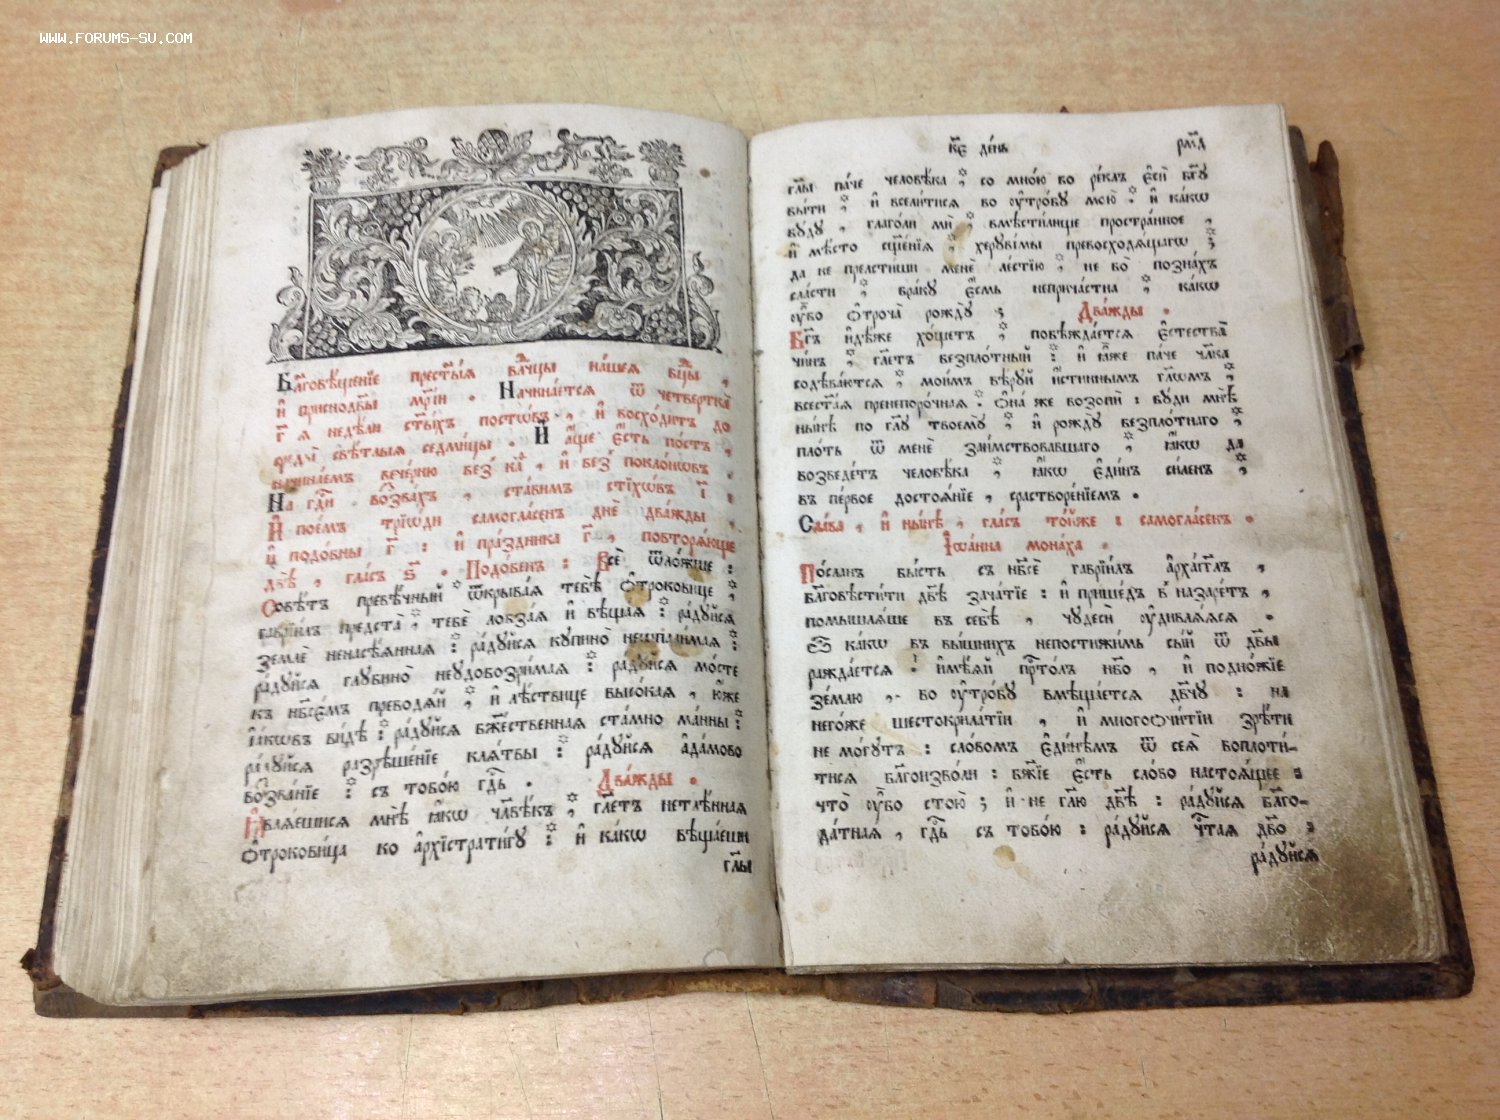 WWW.FORUMS-SU.COM
Бл҃говѣщенїе прест҃ы́ѧ влⷣчцы на́шеѧ бцⷣы ,
и҆ приснодв҃ы мр҃і́и . Начина́етсѧ ѿ четвертка̀
г҃ ѧ недѣли ст҃ы́хъ посто́въ , и҆ восхо́дитъ до
среды̀ свѣ́тлыѧ седми́цы . И҆ а҆́ще є҆́сть по́стъ ,
начина́емъ вече́рню без̾ ка҃ , и҆ без̾ покло́нѡвъ .
На гдⷭ҇и воззва́хъ , ста́вимъ стїхѡ́въ і҃ :
И҆ пое́мъ трїѡ́ди самогла́сенъ днѐ два́жды ,
и҆ подо́бны г҃ : и҆ пра́здника г҃ , повторѧ́юще
двѣ̀ , гла́съ ѕ҃ . Подо́бенъ : Всѐ ѿло́жше :
Совѣ́тъ превѣ́чный ѿкрыва́ѧ тебѣ̀ ѻ҆трокови́це ;
гаврїи́лъ предста̀ , тебѐ лобза́ѧ и҆ вѣща́ѧ : ра́дуйсѧ
землѐ ненасѣ́ѧннаѧ : ра́дуйсѧ купино̀ неѡпали́маѧ :
ра́дуйсѧ глубино̀ неудобозри́маѧ : ра́дуйсѧ мо́сте
къ нб҃се́мъ преводѧ́й ; и҆ лѣ́ствице высо́каѧ , ю҆́же
і҆а́кѡвъ ви́дѣ : ра́дуйсѧ бж҃е́ственнаѧ ста́мно ма́нны :
ра́дуйсѧ разрѣше́нїе клѧ́твы : ра́дуйсѧ а҆да́мово
воззва́нїе : съ тобо́ю гдⷭ҇ь . Два́жды .
Ꙗ҆влѧ́ешисѧ мнѣ̀ ꙗ҆́кѡ чл҃вѣ́къ , гл҃етъ нетлѣ́ннаѧ
ѻ҆трокови́ца ко а҆рхїстрати́гу : и҆ ка́кѡ вѣща́еши
гл҃ы
к҃є де́нь рм҃д
гл҃ы па́че человѣ́ка ; со мно́ю во ре́клъ є҆сѝ бг҃у
бы́ти ; и҆ всели́тисѧ во ᲂу҆тро́бу мою̀ : и҆ ка́кѡ
бу́ду , глаго́ли мѝ ; вмѣсти́лище простра́нное ,
и҆ мѣ́сто сщ҃е́нїѧ , херуві́мы превосходѧ́щагѡ ;
да не прельсти́ши менѐ ле́стїю ; не бо̀ позна́хъ
сла́сти ; бра́ку є҆́смь неприча́стна ; ка́кѡ
ᲂу҆́бо ѻ҆троча̀ рождꙋ̀ ; Два́жды .
Бг҃ъ и҆дѣ́же хо́щетъ ; побѣжда́етсѧ є҆стества̀
чи́нъ ; гл҃етъ безпло́тный : и҆ ꙗ҆́же па́че чл҃ка
содѣва́ютсѧ ; мои́мъ вѣ́руй и҆́стиннымъ гл҃ѡмъ ,
всест҃а́ѧ пренепоро́чнаѧ : ѻ҆на́ же возопѝ : бу́ди мнѣ̀
ны́нѣ по гл҃у твоему̀ ; и҆ рожду̀ безпло́тнаго ;
пло́ть ѿ менѐ заи́мствовавшаго ; ꙗ҆́кѡ да
возведе́тъ человѣ́ка ; ꙗ҆́кѡ є҆ди́нъ си́ленъ ;
въ пе́рвое достоѧ́нїе , срастворе́нїемъ .
Сла́ва , и҆ ны́нѣ , гла́съ то́йже : самогла́сенъ .
І҆ѡа́нна мона́ха .
По́сланъ бы́сть съ нб҃сѐ гаврїи́лъ а҆рха́гг҃лъ ,
бл҃говѣсти́ти дв҃ѣ зача́тїе : и҆ прише́дъ в̾ назаре́тъ ,
помышлѧ́ше въ себѣ̀ , чудесѝ ᲂу҆дивлѧ́ѧсѧ .
Ѽ ка́кѡ въ вы́шнихъ непостижи́мь сы́й ѿ дв҃ы
ражда́етсѧ : и҆мѣ́ѧй прⷭ҇то́лъ нб҃о , и҆ подно́жїе
зе́млю , во ᲂу҆тро́бу вмѣща́етсѧ дв҃чу : на
него́же шестокрила́тїи , и҆ многоочи́тїи зрѣ́ти
не мо́гутъ : сло́вомъ є҆ди́нѣмъ ѿ сеѧ̀ воплоти́-
тисѧ бл҃гоизво́ли : бж҃їе є҆́сть сло́во настоѧ́щее :
что̀ ᲂу҆́бо стою̀ ; и҆ не гл҃ю дв҃ѣ : ра́дуйсѧ бл҃го-
да́тнаѧ , гдⷭ҇ь съ тобо́ю : ра́дуйсѧ чⷭ҇таѧ дв҃о :
ра́дуйсѧ